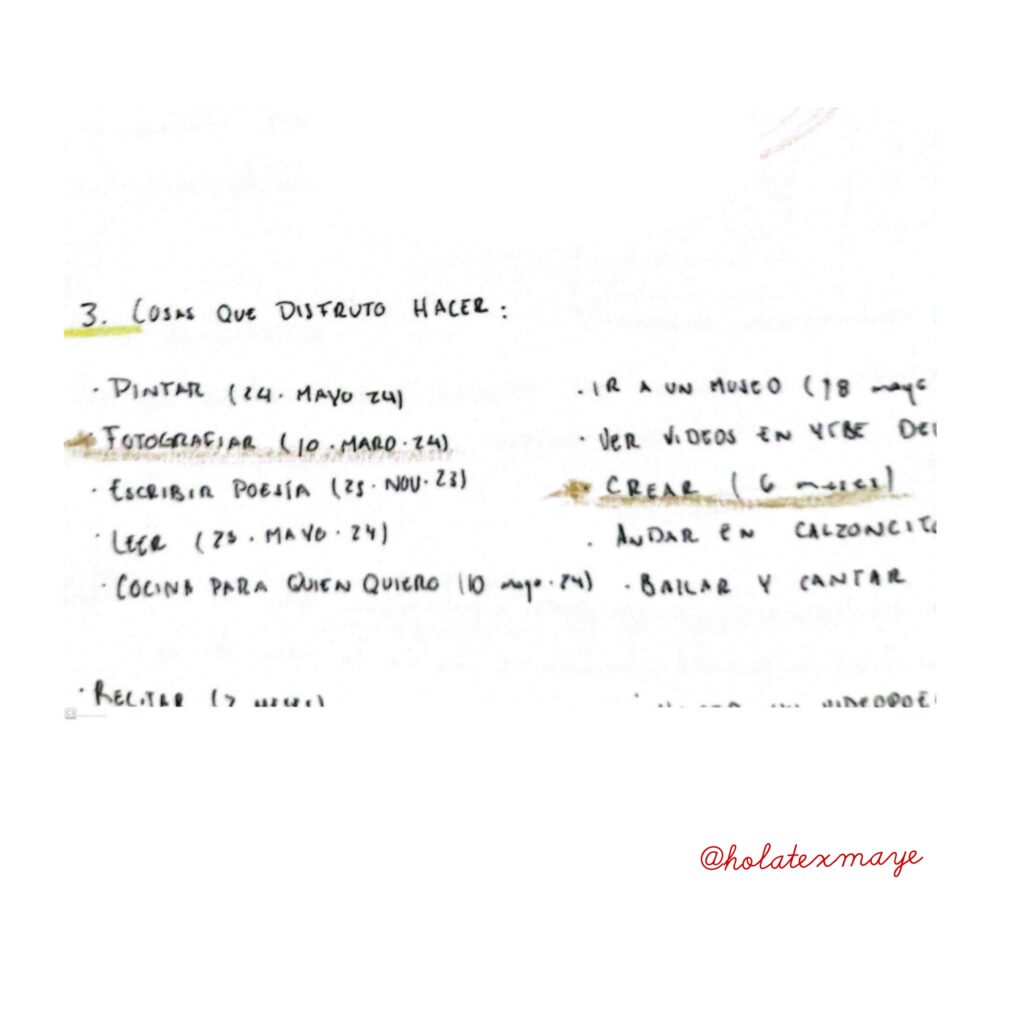 3. COSAS QUE DISFRUTO HACER:
· PINTAR (24. MAYO 24)
· FOTOGRAFIAR (10. MARO. 24)
· ESCRIBIR POESÍA (25. NOV. 23)
· LEER (25. MAYO. 24)
· COCINA PARA QUIEN QUIERO (10 mayo. 24)
· RECITAR (7 meses)
· IR A UN MUSEO (18 mayo
· VER VIDEOS EN YTBE DE
· CREAR (6 meses)
· ANDAR EN CALZONCITO
· BAILAR Y CANTAR
VIDEOPOE
@holatexmaye